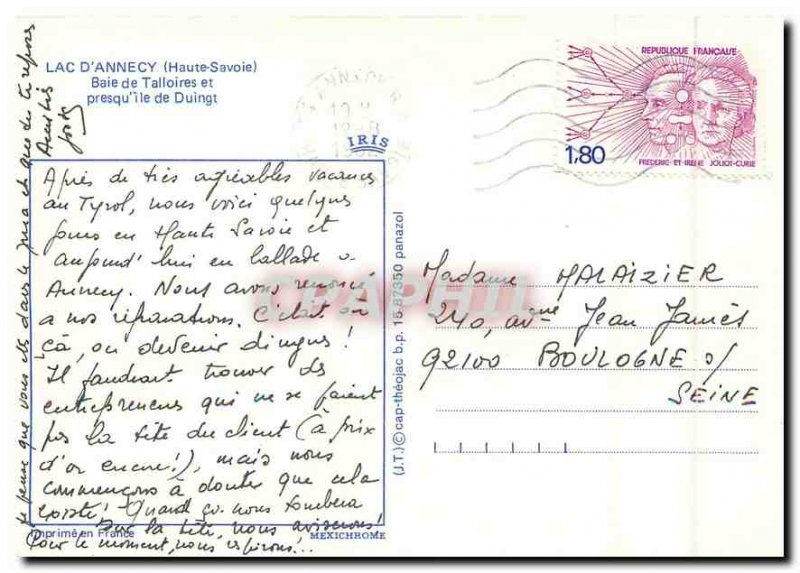 LAC D'ANNECY (Haute-Savoie)
Baie de Talloires et
presqu'île de Duingt
IRIS
REPUBLIQUE FRANÇAISE
1,80
FREDERIC-ET-IRENE JOLIOT-CURIE
Après de très agréables vacances
au Tyrol, nous voici quelques
jours en Haute Savoie et
aujourd'hui en ballade à
Annecy. Nous avons renoncé
a nos réparations. C'était
ça, ou devenir dingues !
Il faudrait trouver des
entrepreneurs qui ne se paient
pas la tête du client (à prix
d'or encore !), mais nous
commençons à douter que cela
existe ! Quand ça nous tombera
sur la tête, nous aviserons !
Pour le moment, nous espérons !..
Je pense que vous êtes dans le Jura et que tu te reposes
Amitiés
(J.T.) © cap-théojac b.p. 15 87350 panazol
Madame MALAIZIER
240, avenue Jean Jaurès
92100 BOULOGNE s/
SEINE
Imprimé en France
MEXICHROME
CPAPHIL